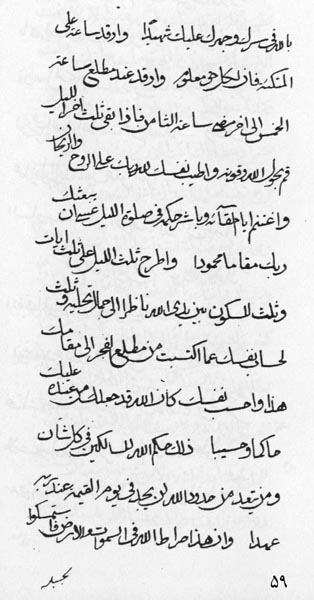 بالله في سرك وجهرك عليك شهيدًا وارقد ساعة على
المتكة فان لكل حي معلوم وارقد عند مطلع ساعة
الخمس الى اخر مضى ساعة الثامن فاذا بقى ثلث اخر الليل
قم بحول الله وقوته واطيب نفسك لله ربك على الروح والريحان
واغتنم ايام لقآئه وباشر حكم في صلوة الليل عسى ان يبعثك
ربك مقاما محمودا واطرح ثلث الليل على ثلث ايات
وثلث للسكون بين يدي الله ناظرا الى جمال تجليه وثلث
لحساب نفسك عما اكتسبت من مطلع الفجر الى مقامك
هذا واحسب نفسك كان الله قد جعلك من عنده عليك
حاكما وحسيبا ذلك حكم الله للسالكين في كل شان
ومن يتعد من حدود الله لن يجد في يوم القيمة عند ربه
عهدا وان هذا صراط الله في السموات والارض فاستمسكوا
۵۹